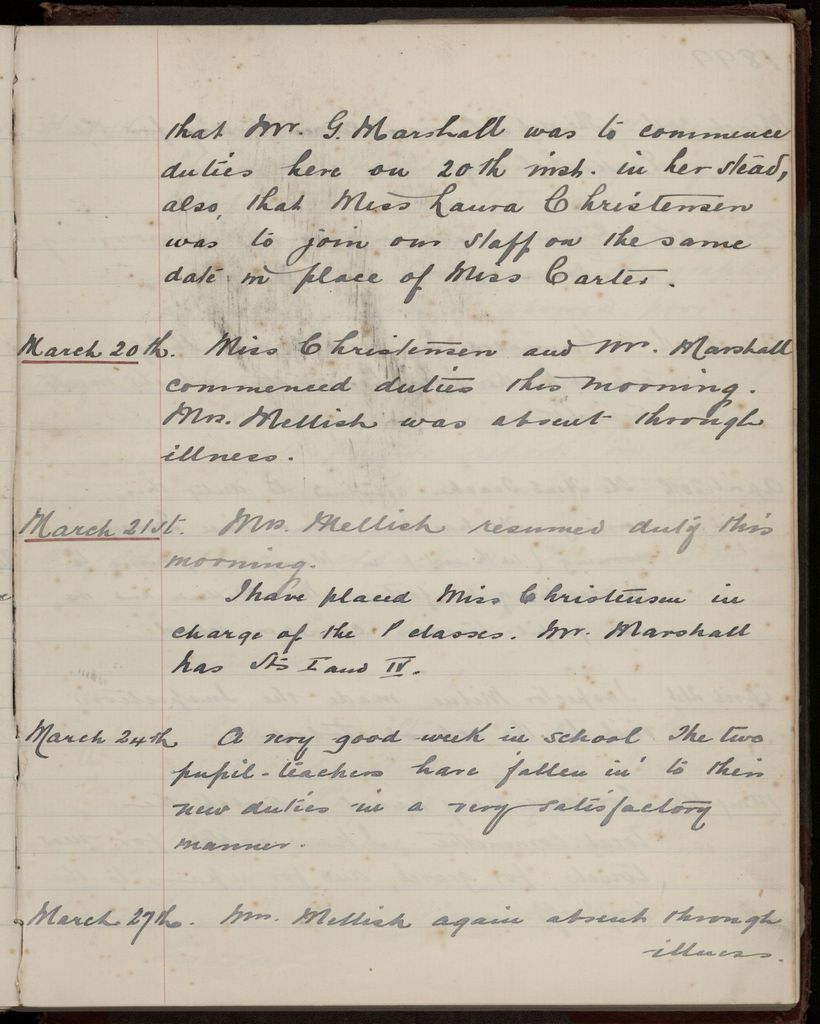 that Mr. G. Marshall was to commence
duties here on 20th inst. in her stead,
also, that Miss Laura Christensen
was to join our staff on the same
date in place of Miss Carter.
March 20th. Miss Christensen and Mr. Marshall
commenced duties this morning.
Mrs. Mellish was absent through
illness.
March 21st. Mrs. Mellish resumed duty this
morning.
I have placed Miss Christensen in
charge of the P classes. Mr. Marshall
has Sts I and IV.
March 24th A very good week in school The two
pupil-teachers have 'fallen in' to their
new duties in a very satisfactory
manner.
March 27th. Mrs. Mellish again absent through
illness.